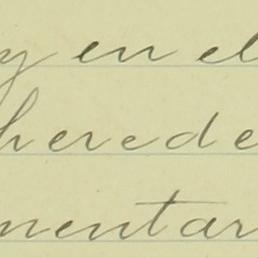 y en el
herede
mentar